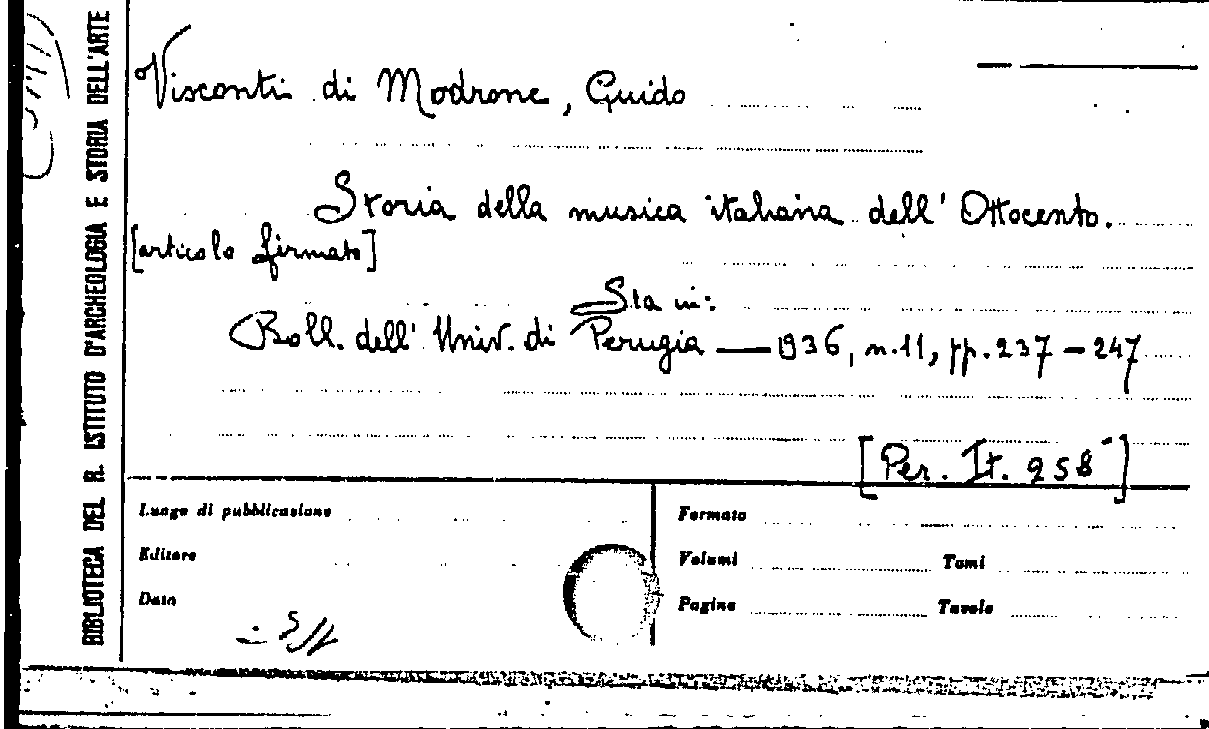 BIBLIOTECA DEL R. ISTITUTO D'ARCHEOLOGIA E STORIA DELL'ARTE
Visconti di Modrone, Guido
Storia della musica italiana dell'Ottocento.
[articolo firmato]
Sta in:
Boll. dell'Univ. di Perugia — 1936, n.11, pp.237-247
[Per. It. 258]
Luogo di pubblicazione
Editore
Data
Formato
Volumi Tomi
Pagine Tavole